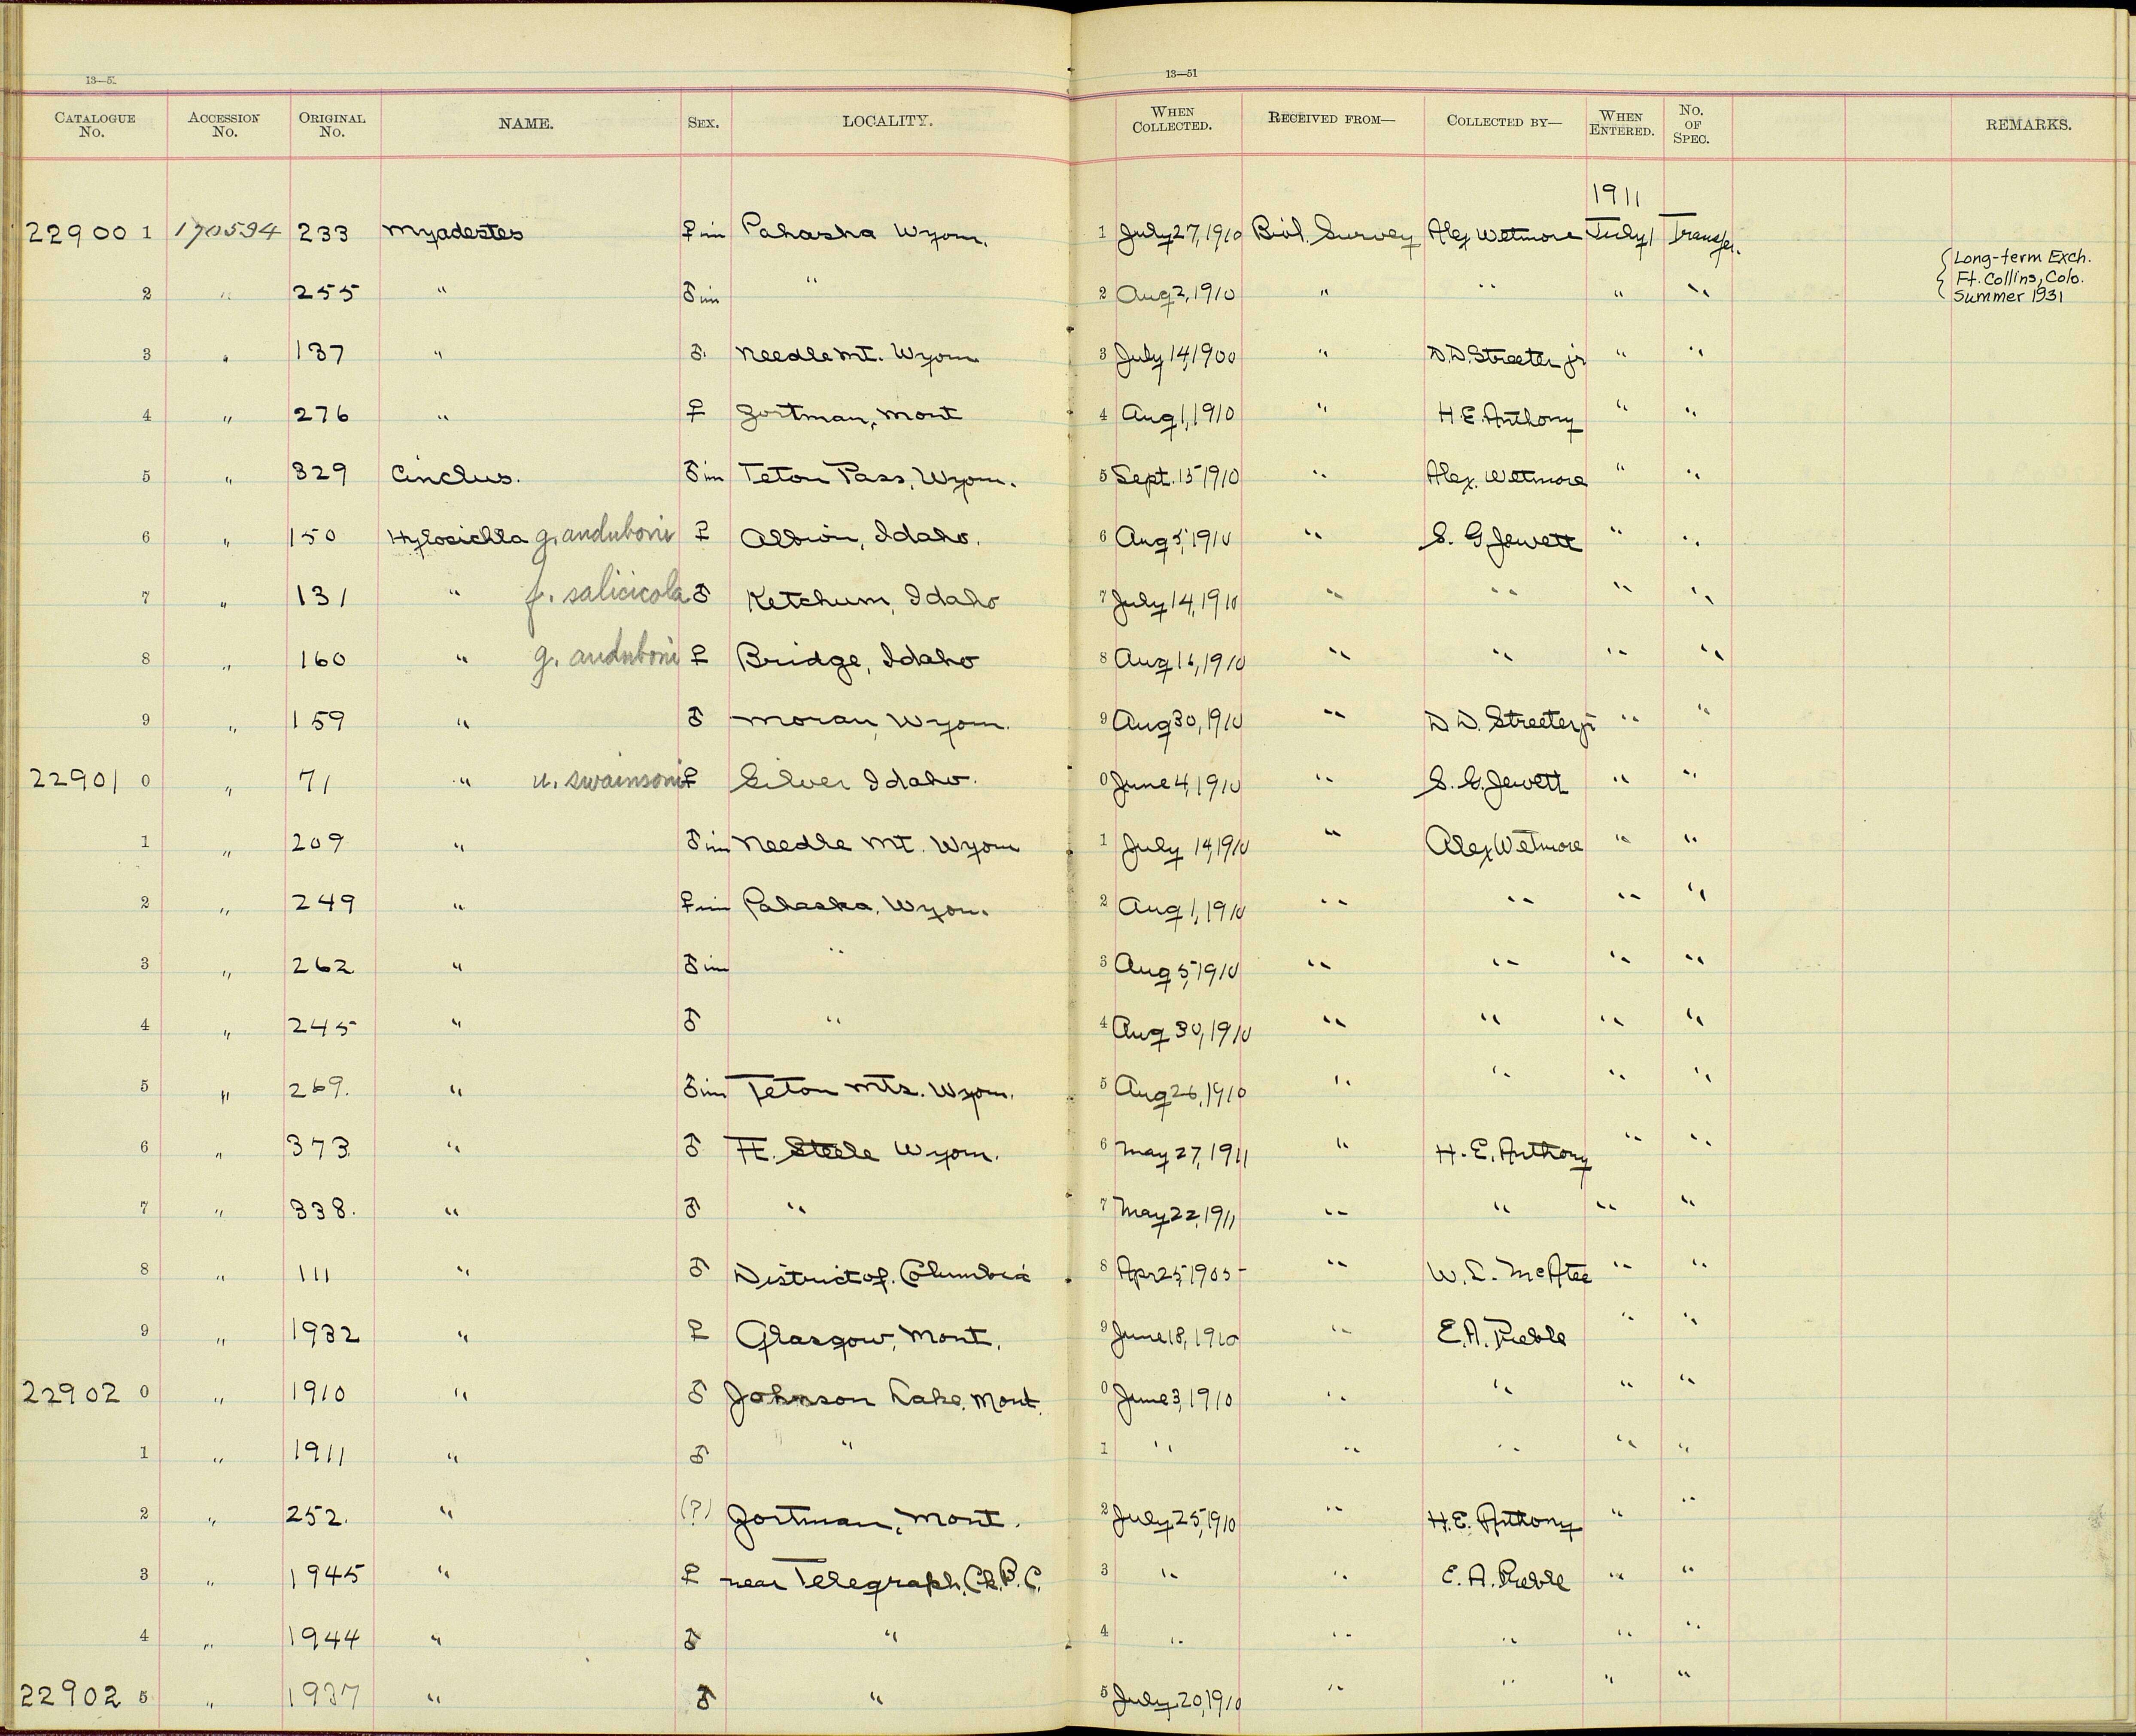 13—5
13—51
CATALOGUE No. ACCESSION No. ORIGINAL No. NAME. SEX. LOCALITY. WHEN COLLECTED. RECEIVED FROM— COLLECTED BY— WHEN ENTERED. No. OF SPEC. REMARKS.
1911
22900 1 170594 233 Myadestes ♀ im Pahaska Wyom. 1 July 27, 1910 Biol. Survey Alex Wetmore July 1 Transfer.
2 " 255 " ♂ im " 2 Aug 2, 1910 " " " " { Long-term Exch. Ft. Collins, Colo. Summer 1931
3 " 137 " ♂. Needle Mt. Wyom 3 July 14, 1900 " D.D. Streeter jr " "
4 " 276 " ♀ Zortman, Mont 4 Aug 1, 1910 " H.E. Anthony " "
5 " 329 Cinclus. ♂ im Teton Pass, Wyom. 5 Sept. 15 1910 " Alex. Wetmore " "
6 " 150 Hylocichla g. auduboni ♀ Albion, Idaho. 6 Aug 5, 1910 " S. G. Jewett " "
7 " 131 " f. salicicola ♂ Ketchum, Idaho 7 July 14, 1910 " " " "
8 " 160 " g. auduboni ♀ Bridge, Idaho 8 Aug 16, 1910 " " " "
9 " 159 " ♂ Moran, Wyom. 9 Aug 30, 1910 " D. D. Streeter jr " "
22901 0 " 71 " u. swainsoni ♀ Silver Idaho. 0 June 4, 1910 " S. G. Jewett " "
1 " 209 " ♂ im Needle Mt. Wyom 1 July 14, 1910 " Alex Wetmore " "
2 " 249 " ♀ im Pahaska, Wyom. 2 Aug 1, 1910 " " " "
3 " 262 " ♂ im " 3 Aug 5, 1910 " " " "
4 " 245 " ♂ " 4 Aug 30, 1910 " " " "
5 " 269. " ♂ im Teton Mts. Wyom. 5 Aug 26, 1910 " " " "
6 " 373 " ♂ Ft. Steele Wyom. 6 May 27, 1911 " H. E. Anthony " "
7 " 338. " ♂ " 7 May 22, 1911 " " " "
8 " 111 " ♂ District of. Columbia 8 Apr 25, 1905 " W. L. McAtee " "
9 " 1932 " ♀ Glasgow, Mont. 9 June 18, 1910 " E.A. Preble " "
22902 0 " 1910 " ♂ Johnson Lake, Mont. 0 June 3, 1910 " " " "
1 " 1911 " ♂ " 1 " " " " "
2 " 252. " (?) Zortman, Mont. 2 July 25, 1910 " H.E. Anthony " "
3 " 1945 " ♀ near Telegraph, Ck. B. C. 3 " " E. A. Preble " "
4 " 1944 " ♂ " 4 " " " " "
22902 5 " 1937 " ♂ " 5 July 20, 1910 " " " "